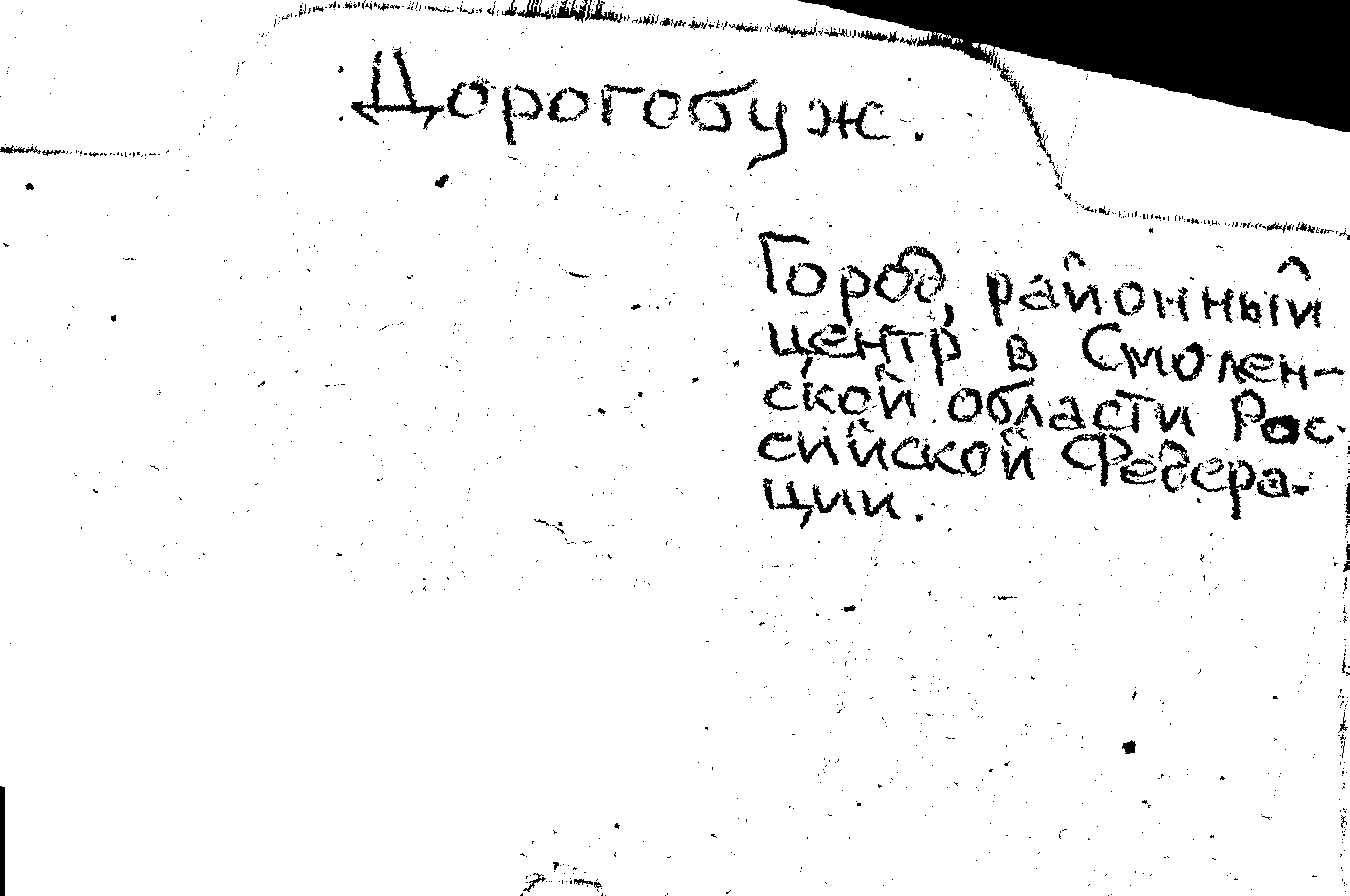 Дорогобуж.
Город, районный
центр в Смолен-
ской области Рос-
сийской Федера-
ции.